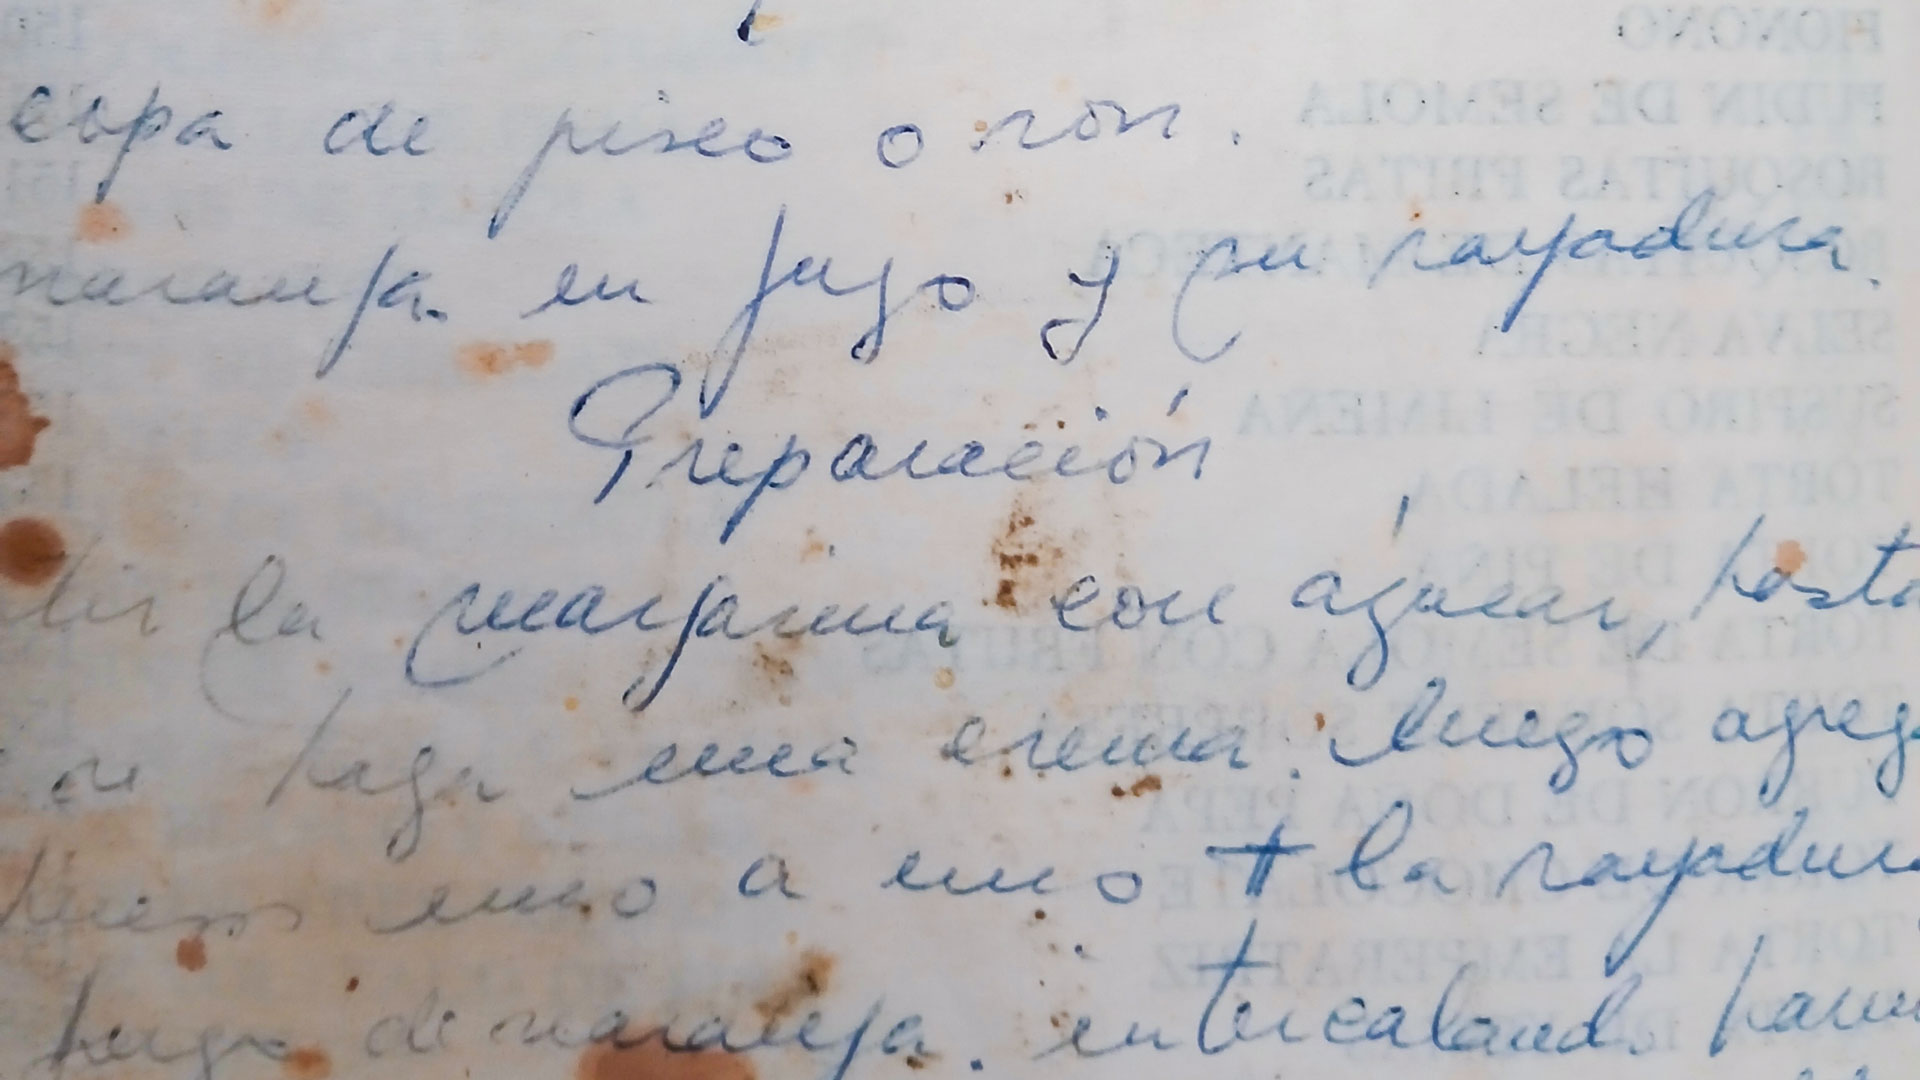 copa de pisco o ron.
naranja en jugo y su rayadura.
Preparación
tir la margarina con azúcar, hasta
se haga una crema. luego agreg
huevos uno a uno + la rayadura
jugo de naranja. intercaland harin
PIONONO
PUDIN DE SEMOLA
ROSQUITAS FRITAS
SELVA NEGRA
SUSPIRO DE LIMEÑA
TORTA HELADA
TORTA DE SEMOLA CON FRUTAS
TURRON DE DOÑA PEPA
TORTA LA EMPERATRIZ